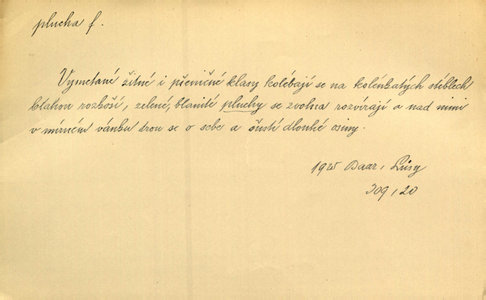 plucha f.
Vymetané žitné i pšeničné klasy kolébají se na kolénkatých stéblech
blahem rozkoší, zelené, blanité pluchy se zvolna rozvírají a nad nimi
v mírném vánku trou se o sebe a šustí dlouhé osiny.
1920 Baar,
309, 20